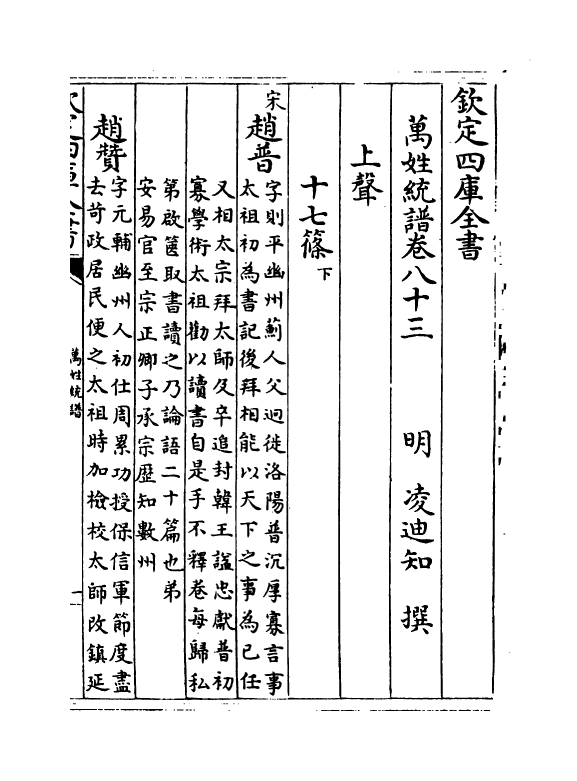 欽定四庫全書
萬姓統譜卷八十三
明 凌迪知 撰
上聲
十七篠下
宋
趙普
字則平幽州薊人父迥徙洛陽普沉厚寡言事
太祖初為書記後拜相能以天下之事為己任
又相太宗拜太師及卒追封韓王諡忠獻普初
寡學術太祖勸以讀書自是手不釋卷每歸私
第啟篋取書讀之乃論語二十篇也弟
安易官至宗正卿子承宗歷知數州
趙贊
字元輔幽州人初仕周累功授保信軍節度盡
去苛政居民便之太祖時加檢校太師改鎮延
萬姓統譜
一